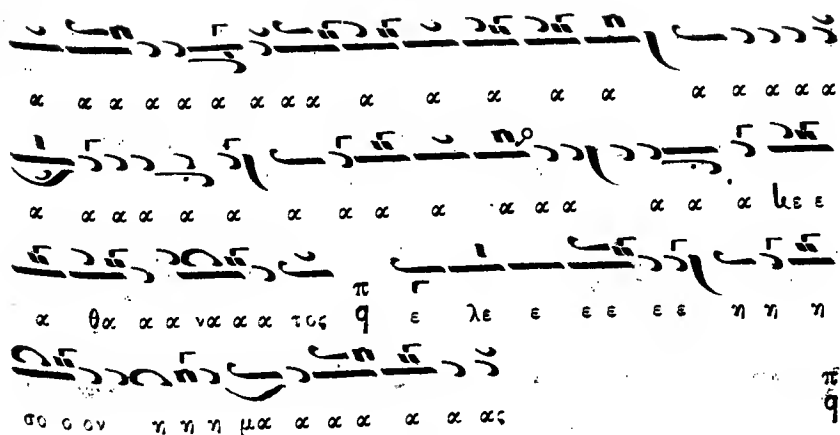 α α α α α α α α α α α α α α α α α α α
α α α α α α α α α α α α α α α α ϗε ε
α θα α α να α α τος π q ε λε ε ε ε ε ε η η η
σο ο ον η η η μα α α α α α ας π q